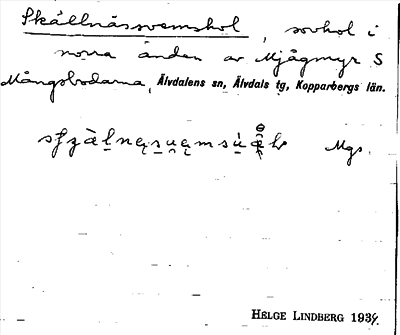 Skållnässvemskol, sovhol i
norra änden av Mjågmyr S
Mångsbodarna, Älvdalens sn, Älvdals tg, Kopparbergs län.
Mgs.
HELGE LINDBERG 1939.